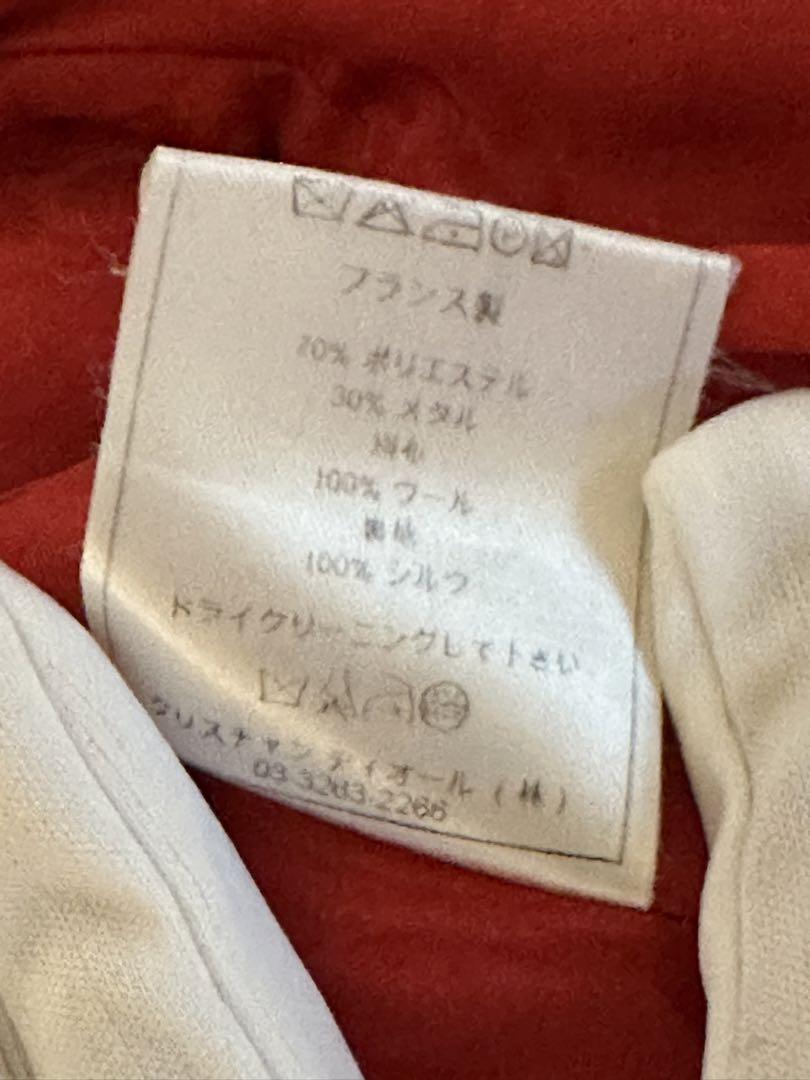 フランス製
70% ポリエステル
30% メタル
別布
100% ウール
裏地
100% シルク
ドライクリーニングして下さい
クリスチャン ディオール (株)
03 3263 2266